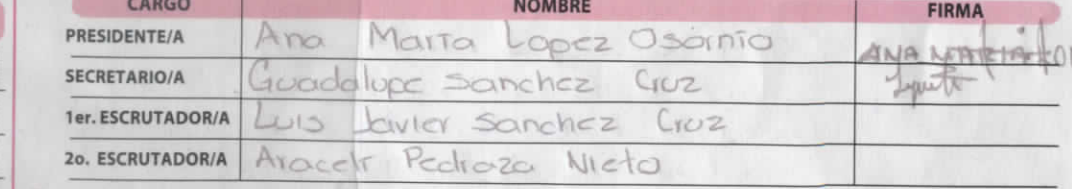 CARGO NOMBRE FIRMA
PRESIDENTE/A Ana Maria Lopez Osornio ANA MARIA
SECRETARIO/A Guadalupe Sanchez Cruz
1er. ESCRUTADOR/A Luis Javier Sanchez Cruz
2o. ESCRUTADOR/A Araceli Pedraza Nieto